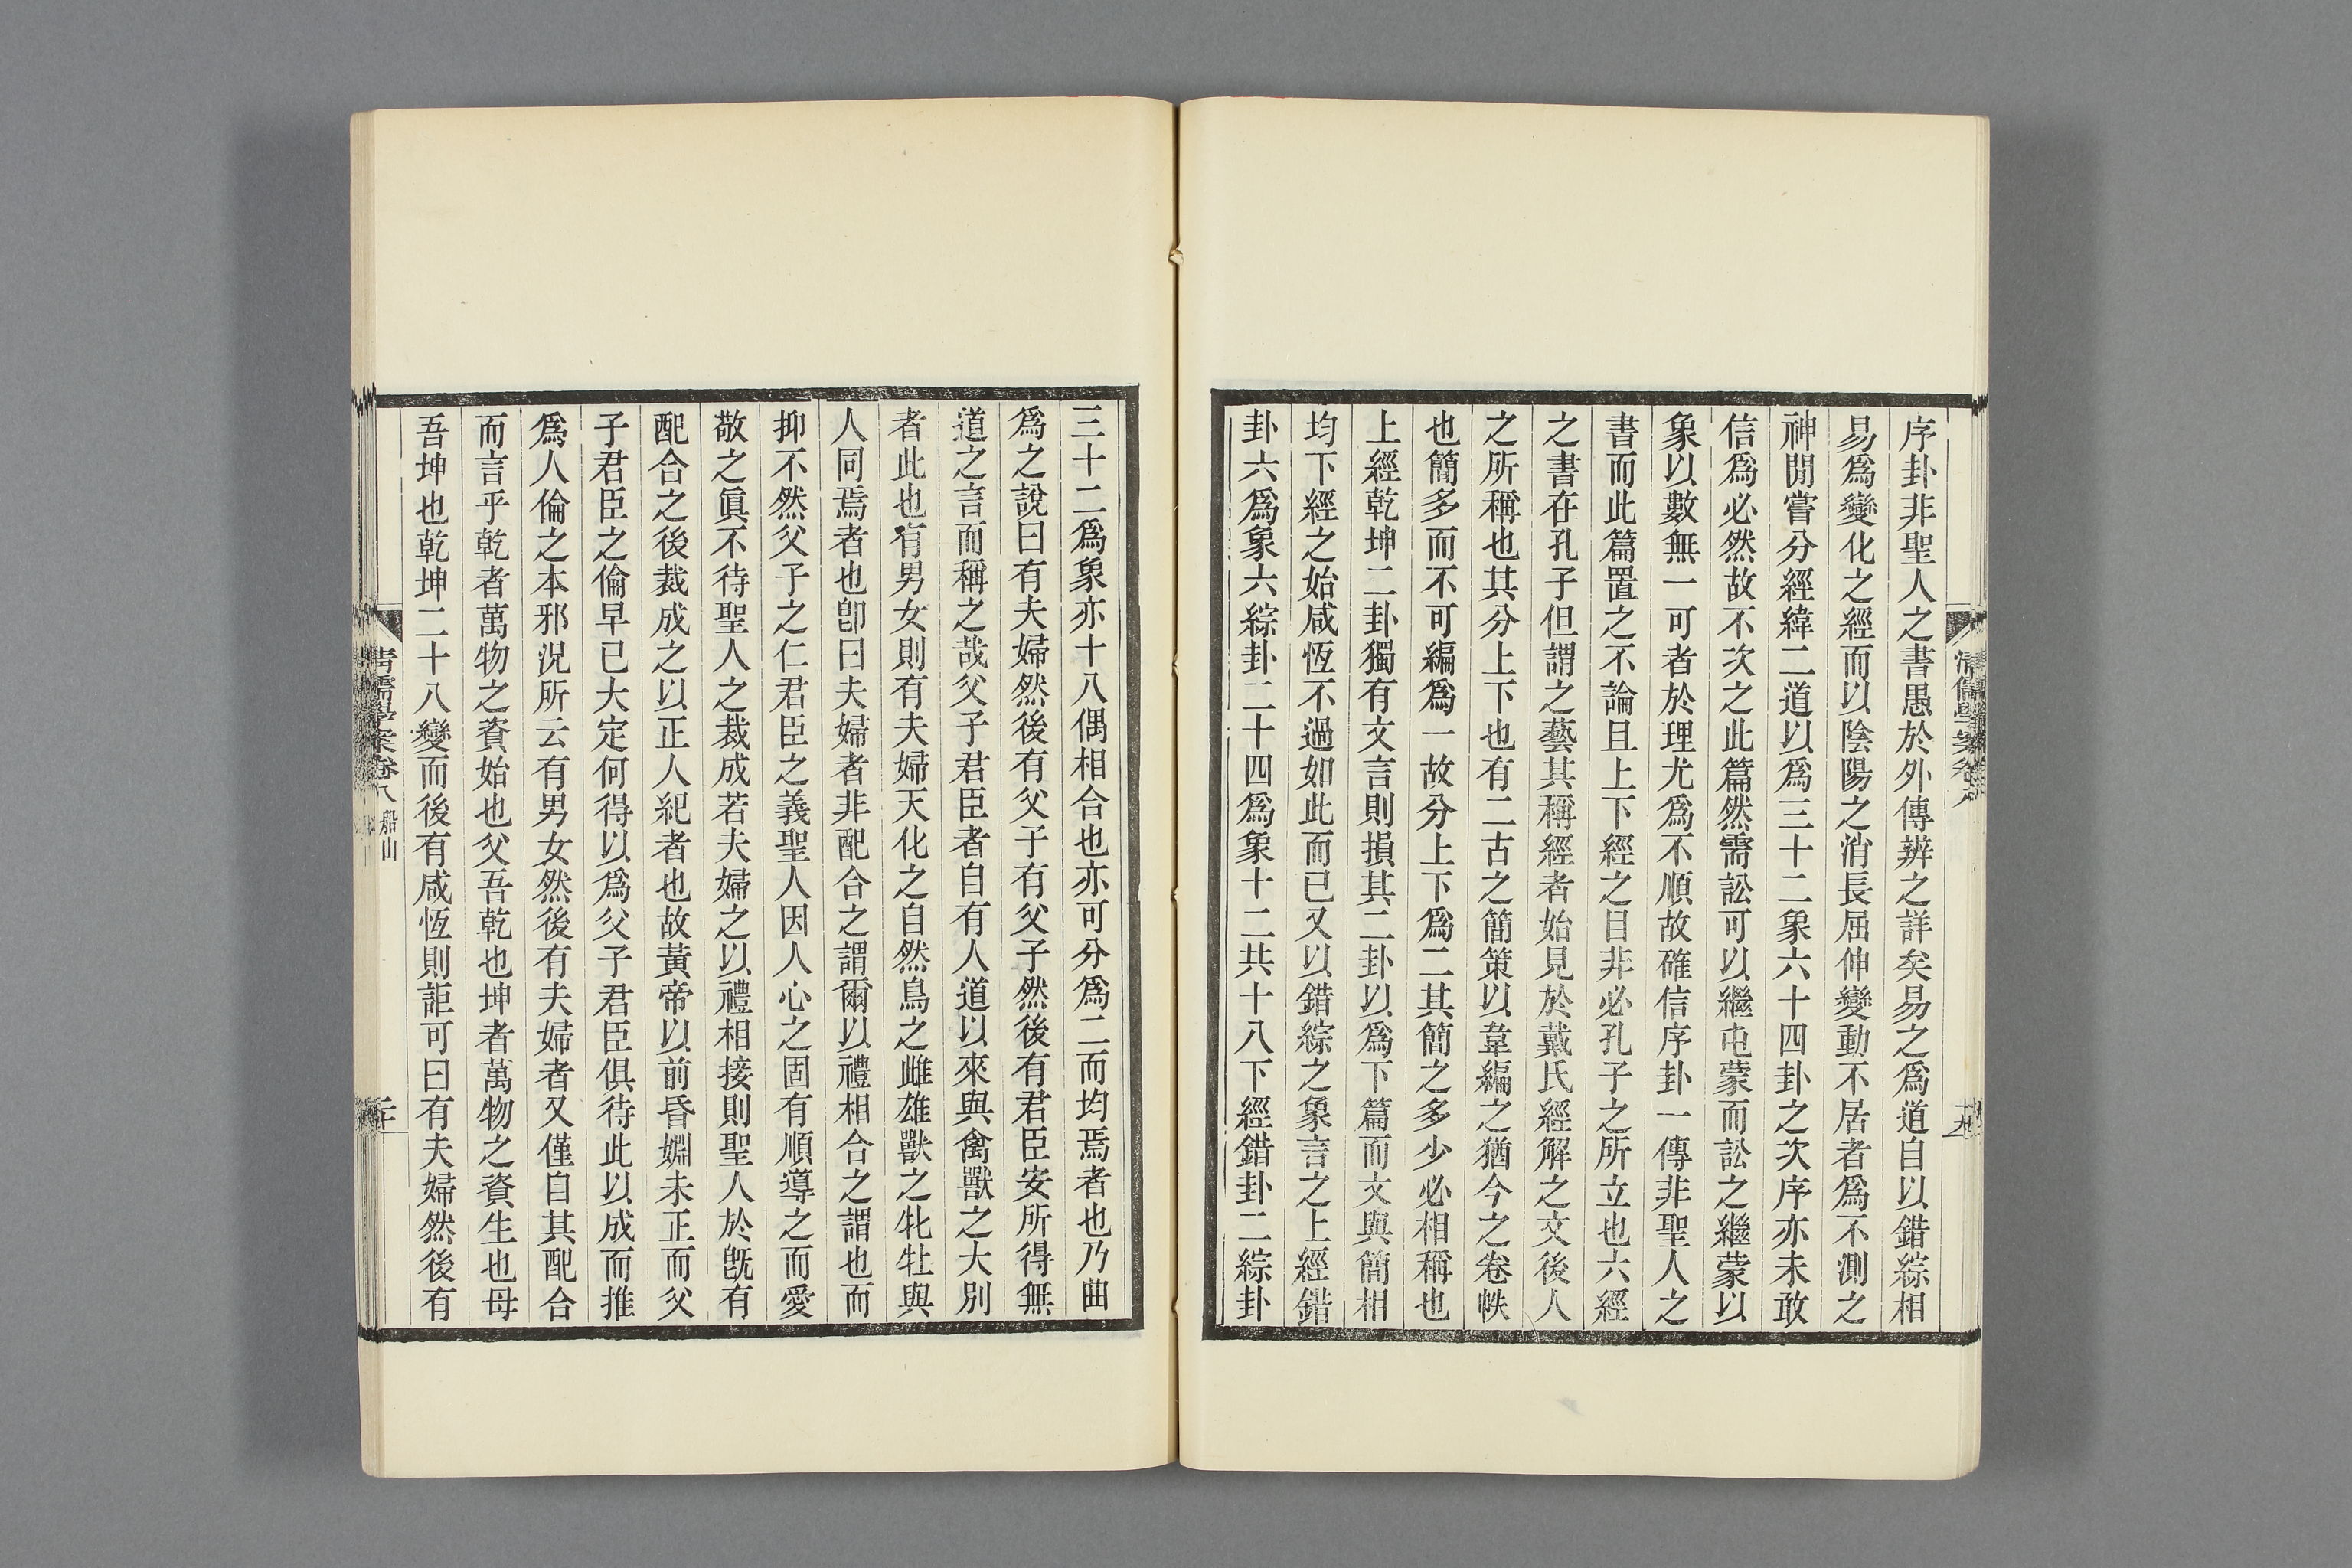 序卦非聖人之書愚於外傳辨之詳矣易之爲道自以錯綜相
易爲變化之經而以陰陽之消長屈伸變動不居者爲不測之
神閒嘗分經緯二道以爲三十二象六十四卦之次序亦未敢
信爲必然故不次之此篇然需訟可以繼屯蒙而訟之繼蒙以
象以數無一可者於理尤爲不順故確信序卦一傳非聖人之
書而此篇置之不論且上下經之目非必孔子之所立也六經
之書在孔子但謂之藝其稱經者始見於戴氏經解之文後人
之所稱也其分上下也有二古之簡策以韋編之猶今之卷帙
也簡多而不可編爲一故分上下爲二其簡之多少必相稱也
上經乾坤二卦獨有文言則損其二卦以爲下篇而文與簡相
均下經之始咸恆不過如此而已又以錯綜之象言之上經錯
卦六爲象六綜卦二十四爲象十二共十八下經錯卦二綜卦
三十二爲象亦十八偶相合也亦可分爲二而均焉者也乃曲
爲之說曰有夫婦然後有父子有父子然後有君臣安所得無
道之言而稱之哉父子君臣者自有人道以來與禽獸之大別
者此也有男女則有夫婦天化之自然鳥之雌雄獸之牝牡與
人同焉者也卽曰夫婦者非配合之謂爾以禮相合之謂也而
抑不然父子之仁君臣之義聖人因人心之固有順導之而愛
敬之眞不待聖人之裁成若夫婦之以禮相接則聖人於旣有
配合之後裁成之以正人紀者也故黃帝以前昏姻未正而父
子君臣之倫早已大定何得以爲父子君臣俱待此以成而推
爲人倫之本邪況所云有男女然後有夫婦者又僅自其配合
而言乎乾者萬物之資始也父吾乾也坤者萬物之資生也母
吾坤也乾坤二十八變而後有咸恆則詎可曰有夫婦然後有
清儒學案卷八 船山
二十